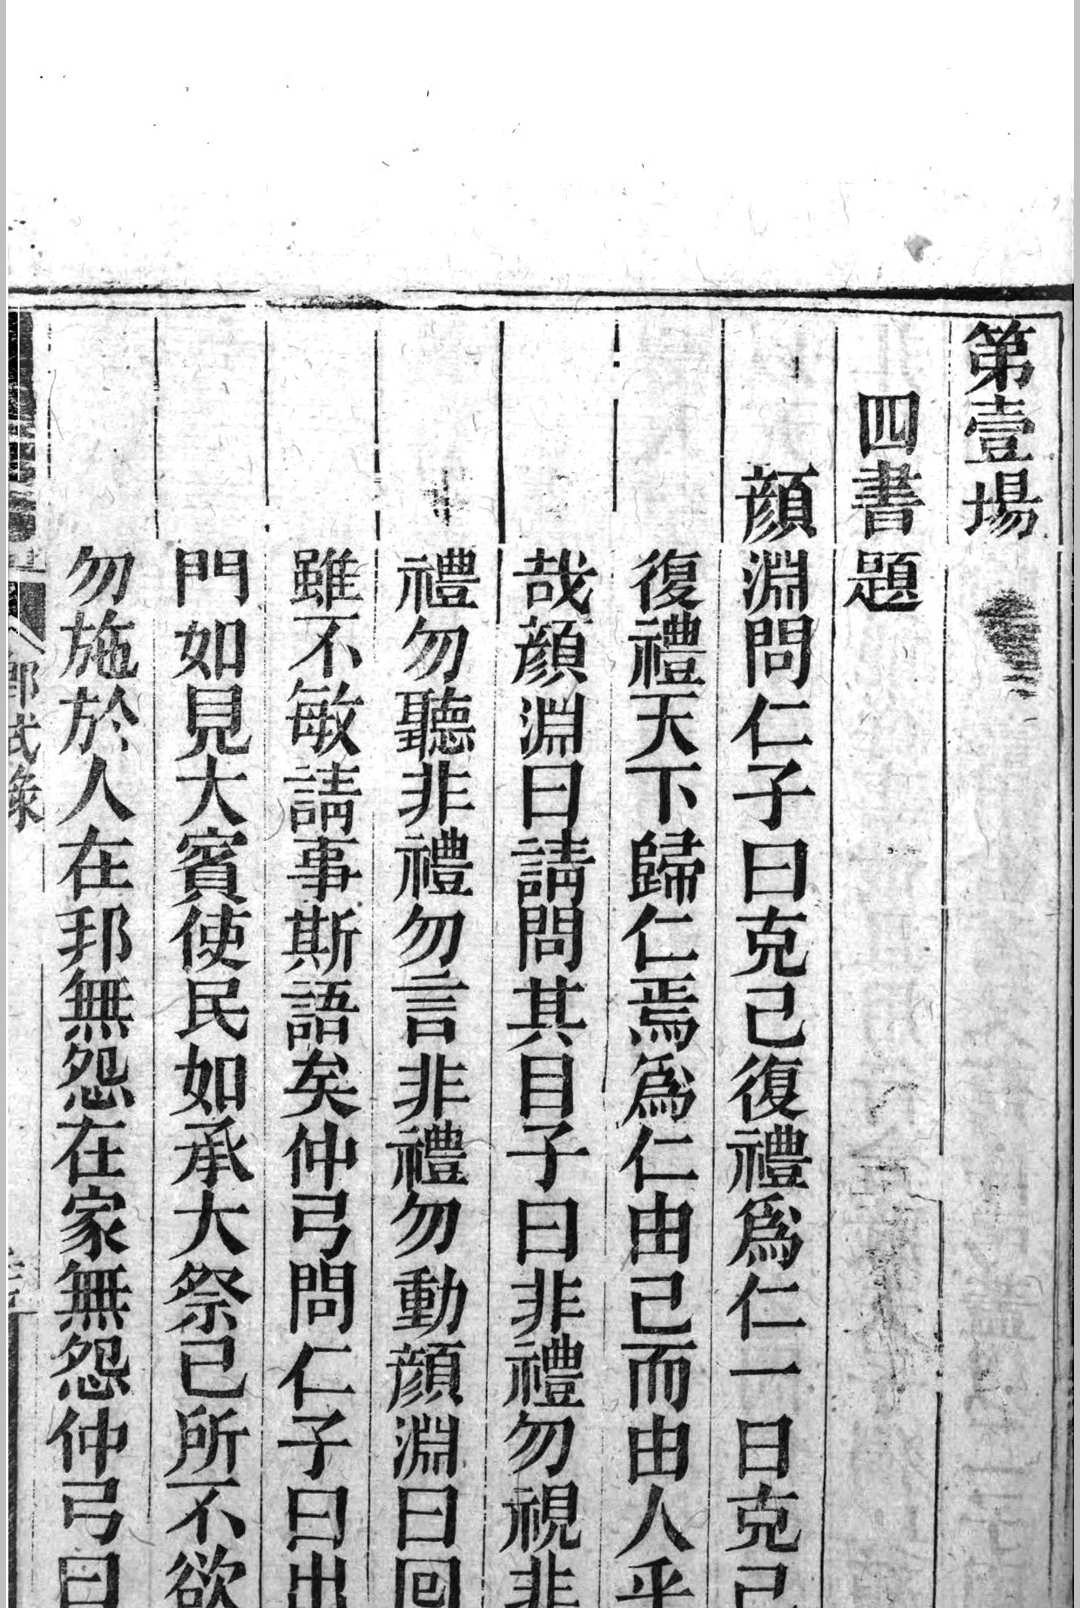 第壹場
四書題
顏淵問仁子曰克己復禮爲仁一日克己
復禮天下歸仁焉爲仁由己而由人乎
哉顏淵曰請問其目子曰非禮勿視非
禮勿聽非禮勿言非禮勿動顏淵曰回
雖不敏請事斯語矣仲弓問仁子曰出
門如見大賓使民如承大祭己所不欲
勿施於人在邦無怨在家無怨仲弓曰
郡式錄